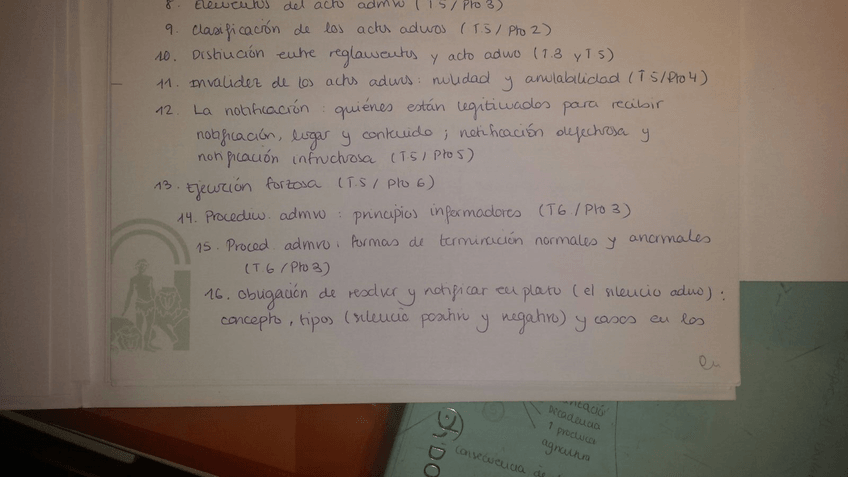 8. Elementos del acto admvo (T5/Pto 3)
9. Clasificación de los actos admvos (T5/Pto 2)
10. Distinción entre reglamentos y acto admvo (T.3 y T5)
11. Invalidez de los actos admvos: nulidad y anulabilidad (T5/Pto 4)
12. La notificación: quiénes están legitimados para recibir
notificación, lugar y contenido; notificación defectuosa y
notificación infructuosa (T5/Pto 5)
13. Ejecución forzosa (T.5/ Pto 6)
14. Procedim. admvo: principios informadores (T6/Pto 3)
15. Proced. admvo: formas de terminación normales y anormales
(T.6/Pto 3)
16. Obligación de resolver y notificar en plazo (el silencio admvo):
concepto, tipos (silencio positivo y negativo) y casos en los
decadencia
1 produce
agricultura
consecuencia de